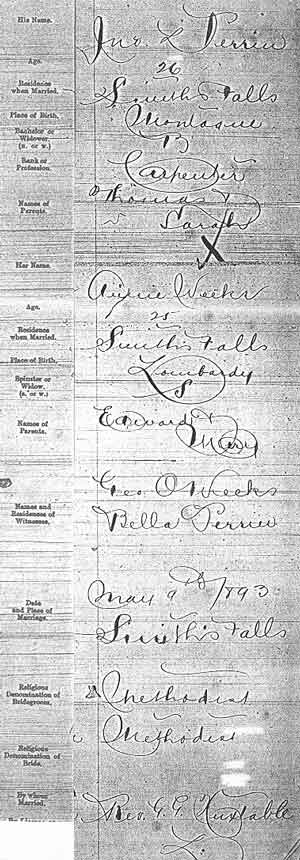 His Name.
Jno. L Perrin
Age.
26
Residence
when Married.
Smiths Falls
Place of Birth.
Montague
Bachelor or
Widower.
(B. or W.)
B
Rank or
Profession.
Carpenter
Names of
Parents.
Thomas &
Sarah
X
Her Name.
Annie Weeks
Age.
25
Residence
when Married.
Smiths Falls
Place of Birth.
Lombardy
Spinster or
Widow.
(S. or W.)
S
Names of
Parents.
Edward &
Mary
Names and
Residences of
Witnesses.
Geo O Weeks
Bella Perrin
Date
and Place of
Marriage.
May 9th 1893
Smiths Falls
Religious
Denomination of
Bridegroom.
Methodist
Religious
Denomination of
Bride.
Methodist
By whom
Married.
Rev. G. G. Huxtable
L.